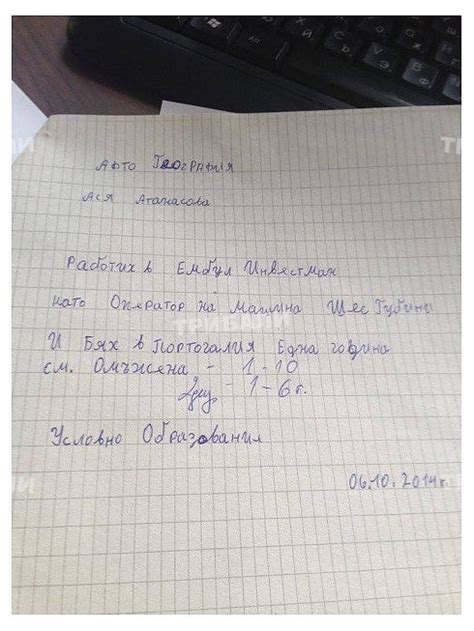 Афто География
Ася Атанасова
Работих в Ембул Инвестман
като Оператор на машина Шес Губини
И Бях в Портогалия Една година
см. Омъжена - 1-10
1-6 г.
Условно Образования
06.10.2014г.
ТРИБУНИ